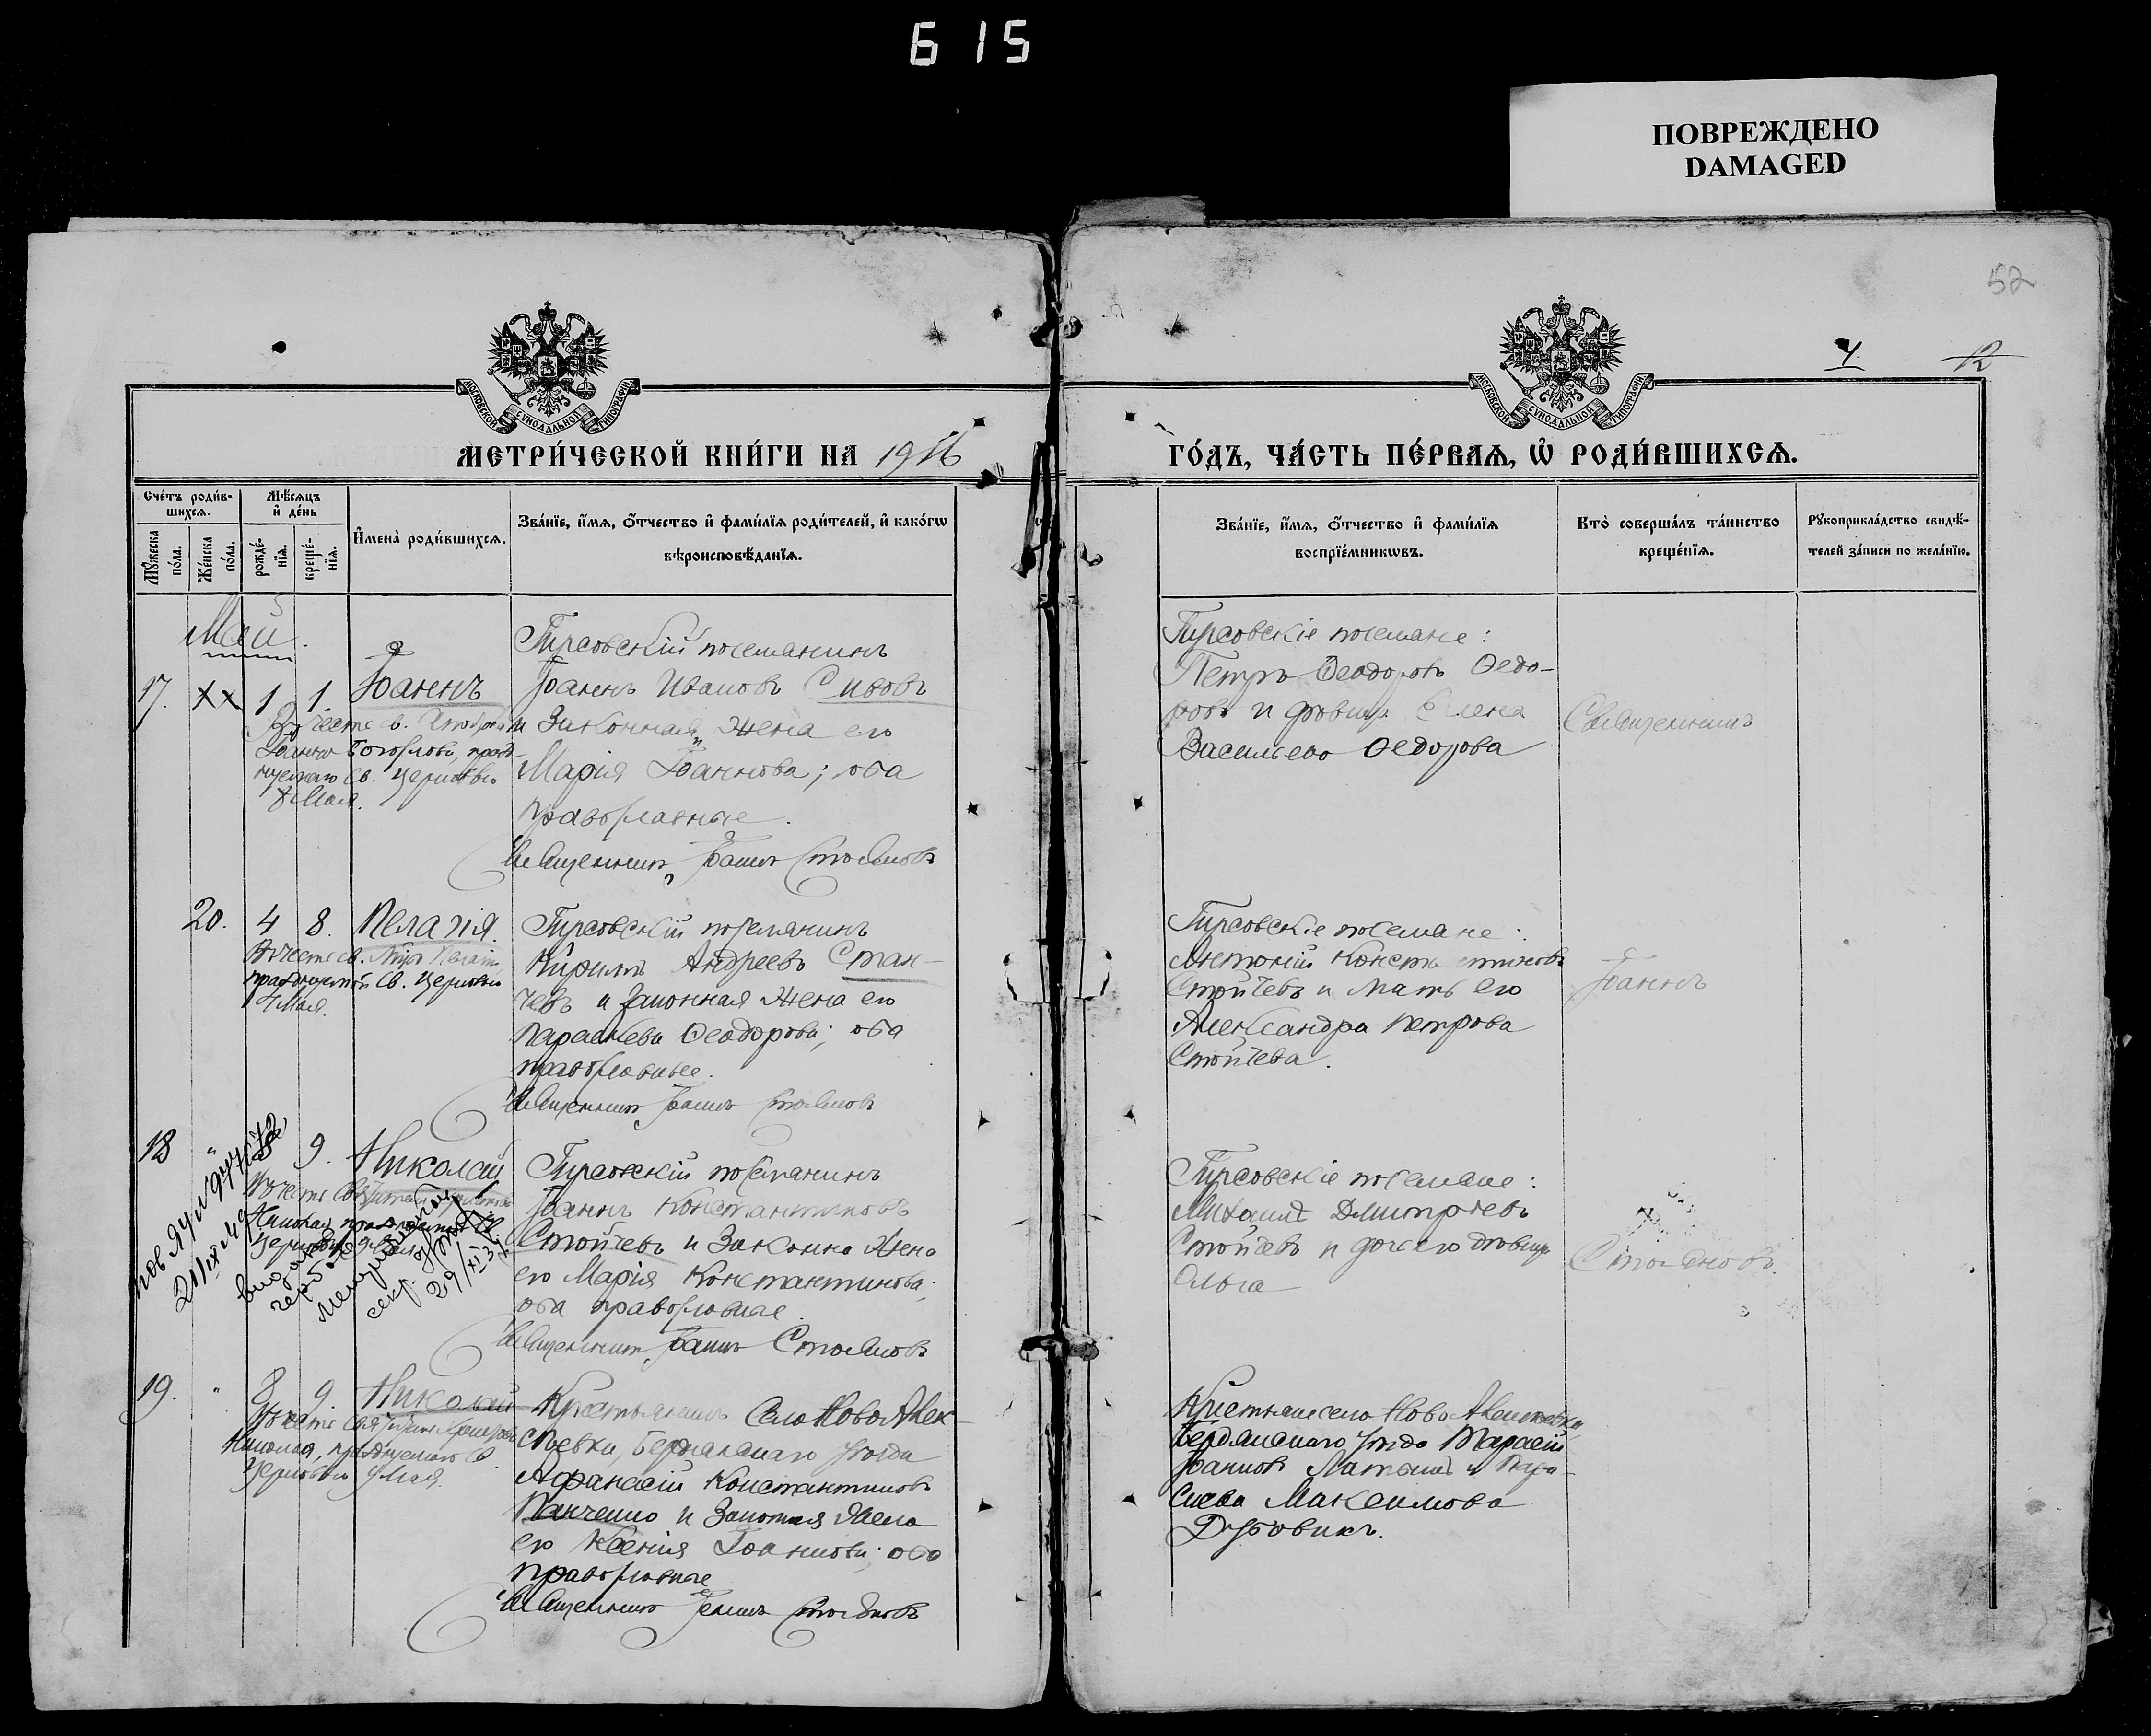 615
ПОВРЕЖДЕНО
DAMAGED
52
12
МОСКОВСКОЙ СѴНОДАЛЬНОЙ ТИПОГРАФІИ
МОСКОВСКОЙ СѴНОДАЛЬНОЙ ТИПОГРАФІИ
МЕТРИ́ЧЕСКОЙ КНИ́ГИ НА 1916
ГО́ДЪ, ЧА́СТЬ ПЕ́РВАѦ, Ѿ РОДИ́ВШИХСѦ.
Сче́тъ роди́в-
шихсѧ.
Мѣ́сѧцъ
и҆ де́нь
Мꙋ́жеска
по́ла.
Же́нска
по́ла.
рожде́-
нїѧ.
креще́-
нїѧ.
И҆мена̀ роди́вшихсѧ.
Зва́нїе, и҆́мѧ, ѻ҆́тчество и҆ фами́лїѧ роди́телей, и҆ како́гѡ
вѣроисповѣ́данїѧ.
Зва́нїе, и҆́мѧ, ѻ҆́тчество и҆ фами́лїѧ
воспрїе́мникѡвъ.
Кто̀ соверша́лъ та́инство
креще́нїѧ.
Рꙋкоприкла́дство свидѣ́-
телей за́писи по жела́нїю.
Май.
17. 1 1 Іоаннъ
Въ честь св.
Іоанна Богослова, празд-
нуемаго Св. Церковью
8 Мая.
Гирсовскій поселянинъ
Іоаннъ Ивановъ Сивовъ
и Законная жена его
Марія Іоаннова; оба
православные.
Священникъ Іоаннъ Стояновъ
Гирсовскіе поселяне:
Петръ Ѳеодоровъ Ѳедо-
ровъ и Елена
Васильева Ѳедорова
Священникъ
20. 4 8. Пелагія.
Въ честь св. Пелагіи
празднуемой Св. Церковью
4 Мая.
Гирсовскій поселянинъ
Кириллъ Андреевъ Стан-
чевъ и законная жена его
Параскева Ѳеодорова; оба
православные.
Священникъ Іоаннъ Стояновъ
Гирсовскіе поселяне:
Антоній Константиновъ
Стойчевъ и мать его
Александра Петрова
Стойчева.
Іоаннъ
18 " 9. Николай
Въ честь Святителя
Николая, празднуемаго Св.
Церковью 9 Мая
21/IX 49
29/XI 34
Гирсовскій поселянинъ
Іоаннъ Константиновъ
Стойчевъ и Законная жена
его Марія Константинова;
оба православные.
Священникъ Іоаннъ Стояновъ
Гирсовскіе поселяне:
Михаилъ Димитріевъ
Стойчевъ и дочь его
Ольга
Стояновъ.
19. " 8 9. Николай
Въ честь Святителя
Николая, празднуемаго Св.
Церковью 9 Мая.
Крестьянинъ Села Ново Алек-
сѣевки, Бердянскаго уѣзда
Афанасій Константиновъ
Панченко и Законная жена
его Ксенія Іоаннова; оба
православные
Священникъ Іоаннъ Стояновъ
Крестьяне села Ново Алексѣевки,
Бердянскаго уѣзда Тарасій
Іоанновъ и Пара-
скева Максимова
Дубовикъ.